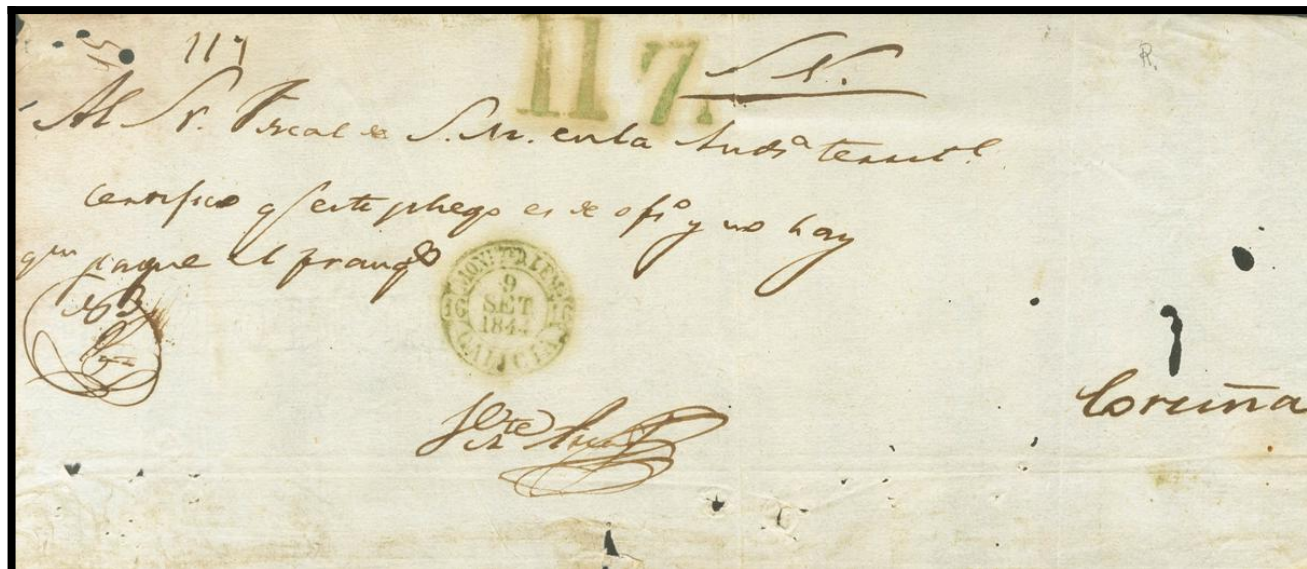 117
117.
S. N.
R.
Al Sr. Fiscal de S. M. en la Auda territl.
Certifico q este pliego es de ofo y no hay
qn pague el franqo
MONTERREY
9
SET
1844
GALICIA
Coruña